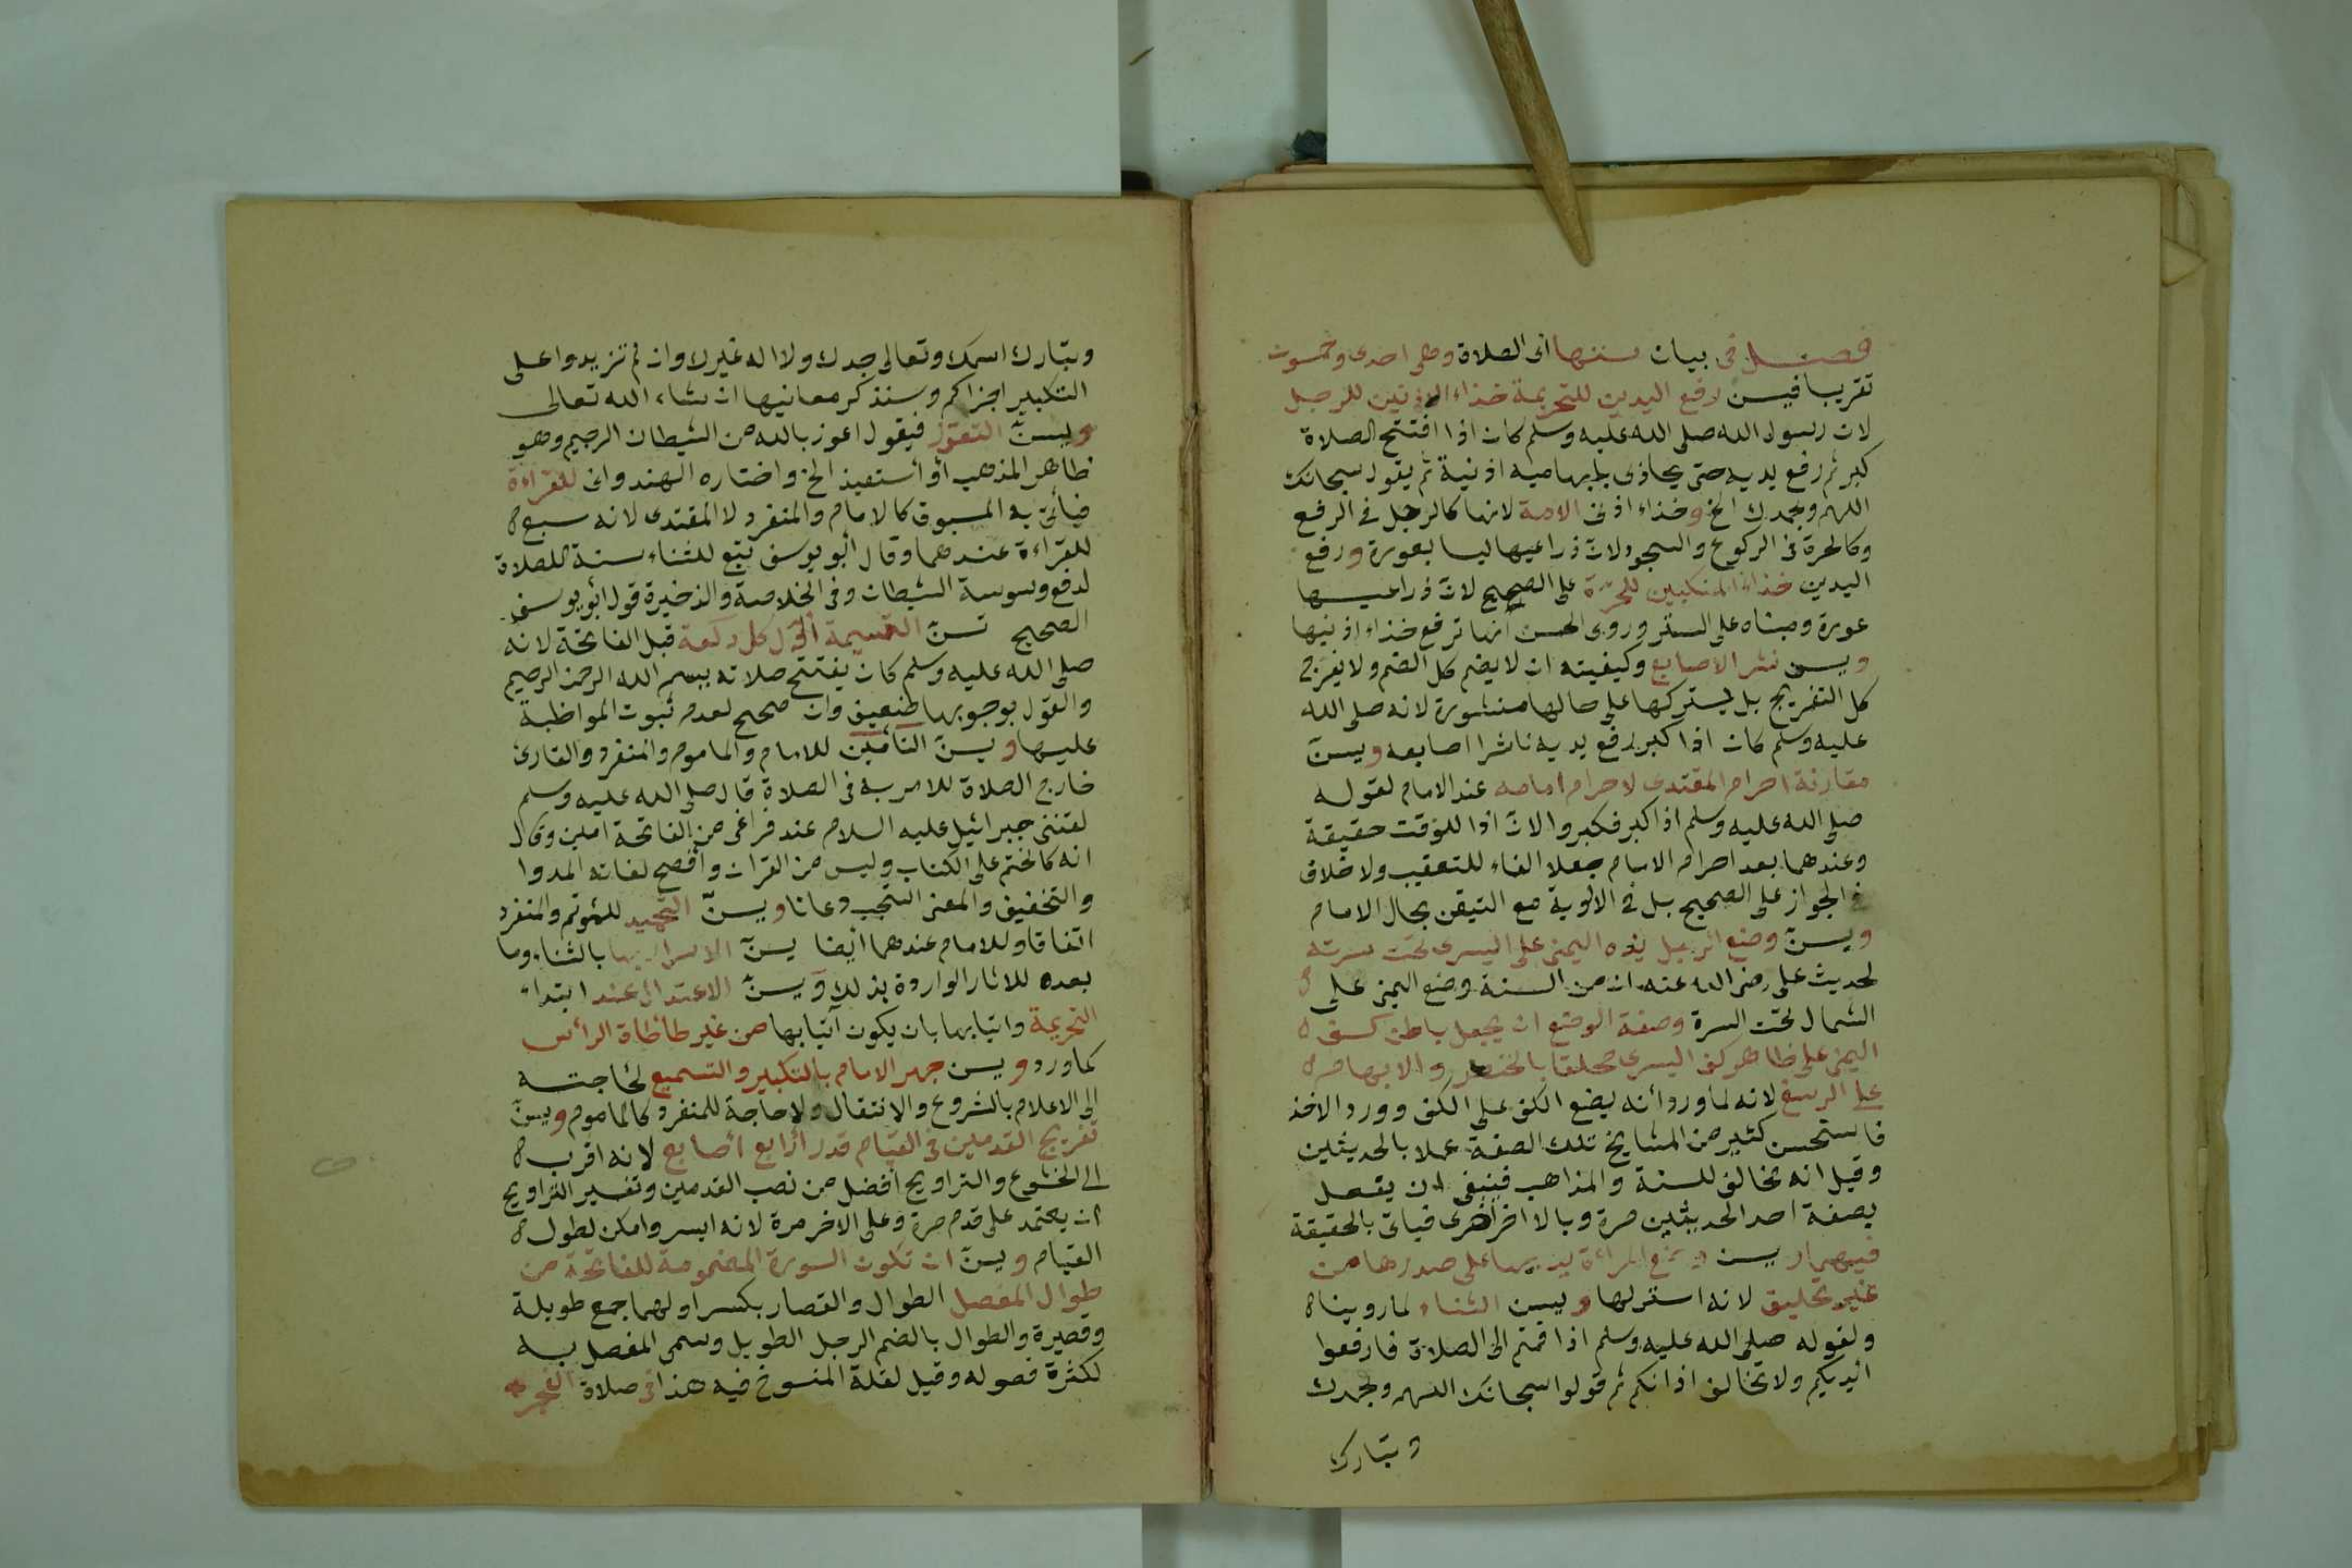 فصل في بيان سننها اى الصلاة وهى احدى وخمسون
تقريبا فيسن رفع اليدين للتحريمة حذاء الاذنين للرجل
لان رسول الله صلى الله عليه وسلم كان اذا افتتح الصلاة
كبر ثم رفع يديه حتى يحاذى بابهاميه اذنيه ثم يقول سبحانك
اللهم وبحمدك الخ وحذاء اذنى الامة لانها كالرجل فى الرفع
وكالحرة فى الركوع والسجود لان ذراعيها ليسا بعورة ورفع
اليدين حذاء المنكبين للحرة على الصحيح لان ذراعيها
عورة ومبناه على الستر وروى الحسن انها ترفع حذاء اذنيها
ويسن نشر الاصابع وكيفيته ان لا يضم كل الضم ولا يفرج
كل التفريج بل يتركها على حالها منشورة لانه صلى الله
عليه وسلم كان اذا كبر رفع يديه ناشرا اصابعه ويسن
مقارنة احرام المقتدى لاحرام امامه عند الامام لقوله
صلى الله عليه وسلم اذا كبر فكبروا لان اذا للوقت حقيقة
وعندهما بعد احرام الامام جعلا الفاء للتعقيب ولا خلاف
فى الجواز على الصحيح بل فى الاولوية مع التيقن بحال الامام
ويسن وضع الرجل يده اليمنى على اليسرى تحت سرته
لحديث على رضى الله عنه ان من السنة وضع اليمنى على
الشمال تحت السرة وصفة الوضع ان يجعل باطن كف
اليمنى على ظاهر كف اليسرى محلقا بالخنصر والابهام
على الرسغ لانه لما ورد أنه يضع الكف على الكف وورد الاخذ
فاستحسن كثير من المشايخ تلك الصفة عملا بالحديثين
وقيل انه مخالف للسنة والمذاهب فينبغى ان يفعل
بصفة احد الحديثين مرة وبالاخر اخرى فيأتى بالحقيقة
فيهما ويسن وضع المرأة يديها على صدرها من
غير تحليق لانه استر لها ويسن الثناء لما روينا
ولقوله صلى الله عليه وسلم اذا قمتم الى الصلاة فارفعوا
ايديكم ولا تخالف اذانكم ثم قولوا سبحانك اللهم وبحمدك
وتبارك
وتبارك اسمك وتعالى جدك ولا اله غيرك وان لم تزيدوا على
التكبير اجزاكم وسنذكر معانيها ان شاء الله تعالى
ويسن التعوذ فيقول اعوذ بالله من الشيطان الرجيم وهو
ظاهر المذهب أو أستعيذ الخ واختاره الهندوانى للقراءة
فيأتى به المسبوق كالامام والمنفرد لا المقتدى لانه تبع
للقراءة عندهما وقال أبو يوسف تبع للثناء سنة للصلاة
لدفع وسوسة الشيطان وفى الخلاصة والذخيرة قول أبو يوسف
الصحيح تسن التسمية أول كل ركعة قبل الفاتحة لانه
صلى الله عليه وسلم كان يفتتح صلاته ببسم الله الرحمن الرحيم
والقول بوجوبها ضعيف وان صحح لعدم ثبوت المواظبة
عليها ويسن التأمين للامام والماموم والمنفرد والقارئ
خارج الصلاة للامر به فى الصلاة قال صلى الله عليه وسلم
لقننى جبرائيل عليه السلام عند فراغى من الفاتحة امين وقال
انه كالختم على الكتاب وليس من القران وأفصح لغاته المد وا
والتخفيف والمعنى استجب دعانا ويسن التحميد للمؤتم والمنفرد
اتفاقا وللامام عندهما أيضا يسن الاسرار بها بالثناء وما
بعده للاثار الواردة بذلك ويسن الاعتدال عند ابتداء
التحريمة وانتهائها بان يكون آتيا بها من غير طأطأة الرأس
كما ورد ويسن جهر الامام بالتكبير والتسميع لحاجته
إلى الاعلام بالشروع والانتقال ولا حاجة للمنفرد كالماموم ويسن
تفريج القدمين فى القيام قدر أرابع أصابع لانه اقرب
الى الخشوع والتراويح افضل من نصب القدمين وتفسير التراويح
ان يعتمد على قدم مرة وعلى الاخر مرة لانه ايسر وامكن لطول
القيام ويسن ان تكون السورة المضمومة للفاتحة من
طوال المفصل الطوال والقصار بكسر اولهما جمع طويلة
وقصيرة والطوال بالضم الرجل الطويل وسمى المفصل به
لكثرة فصوله وقيل لقلة المنسوخ فيه هذا فى صلاة الفجر